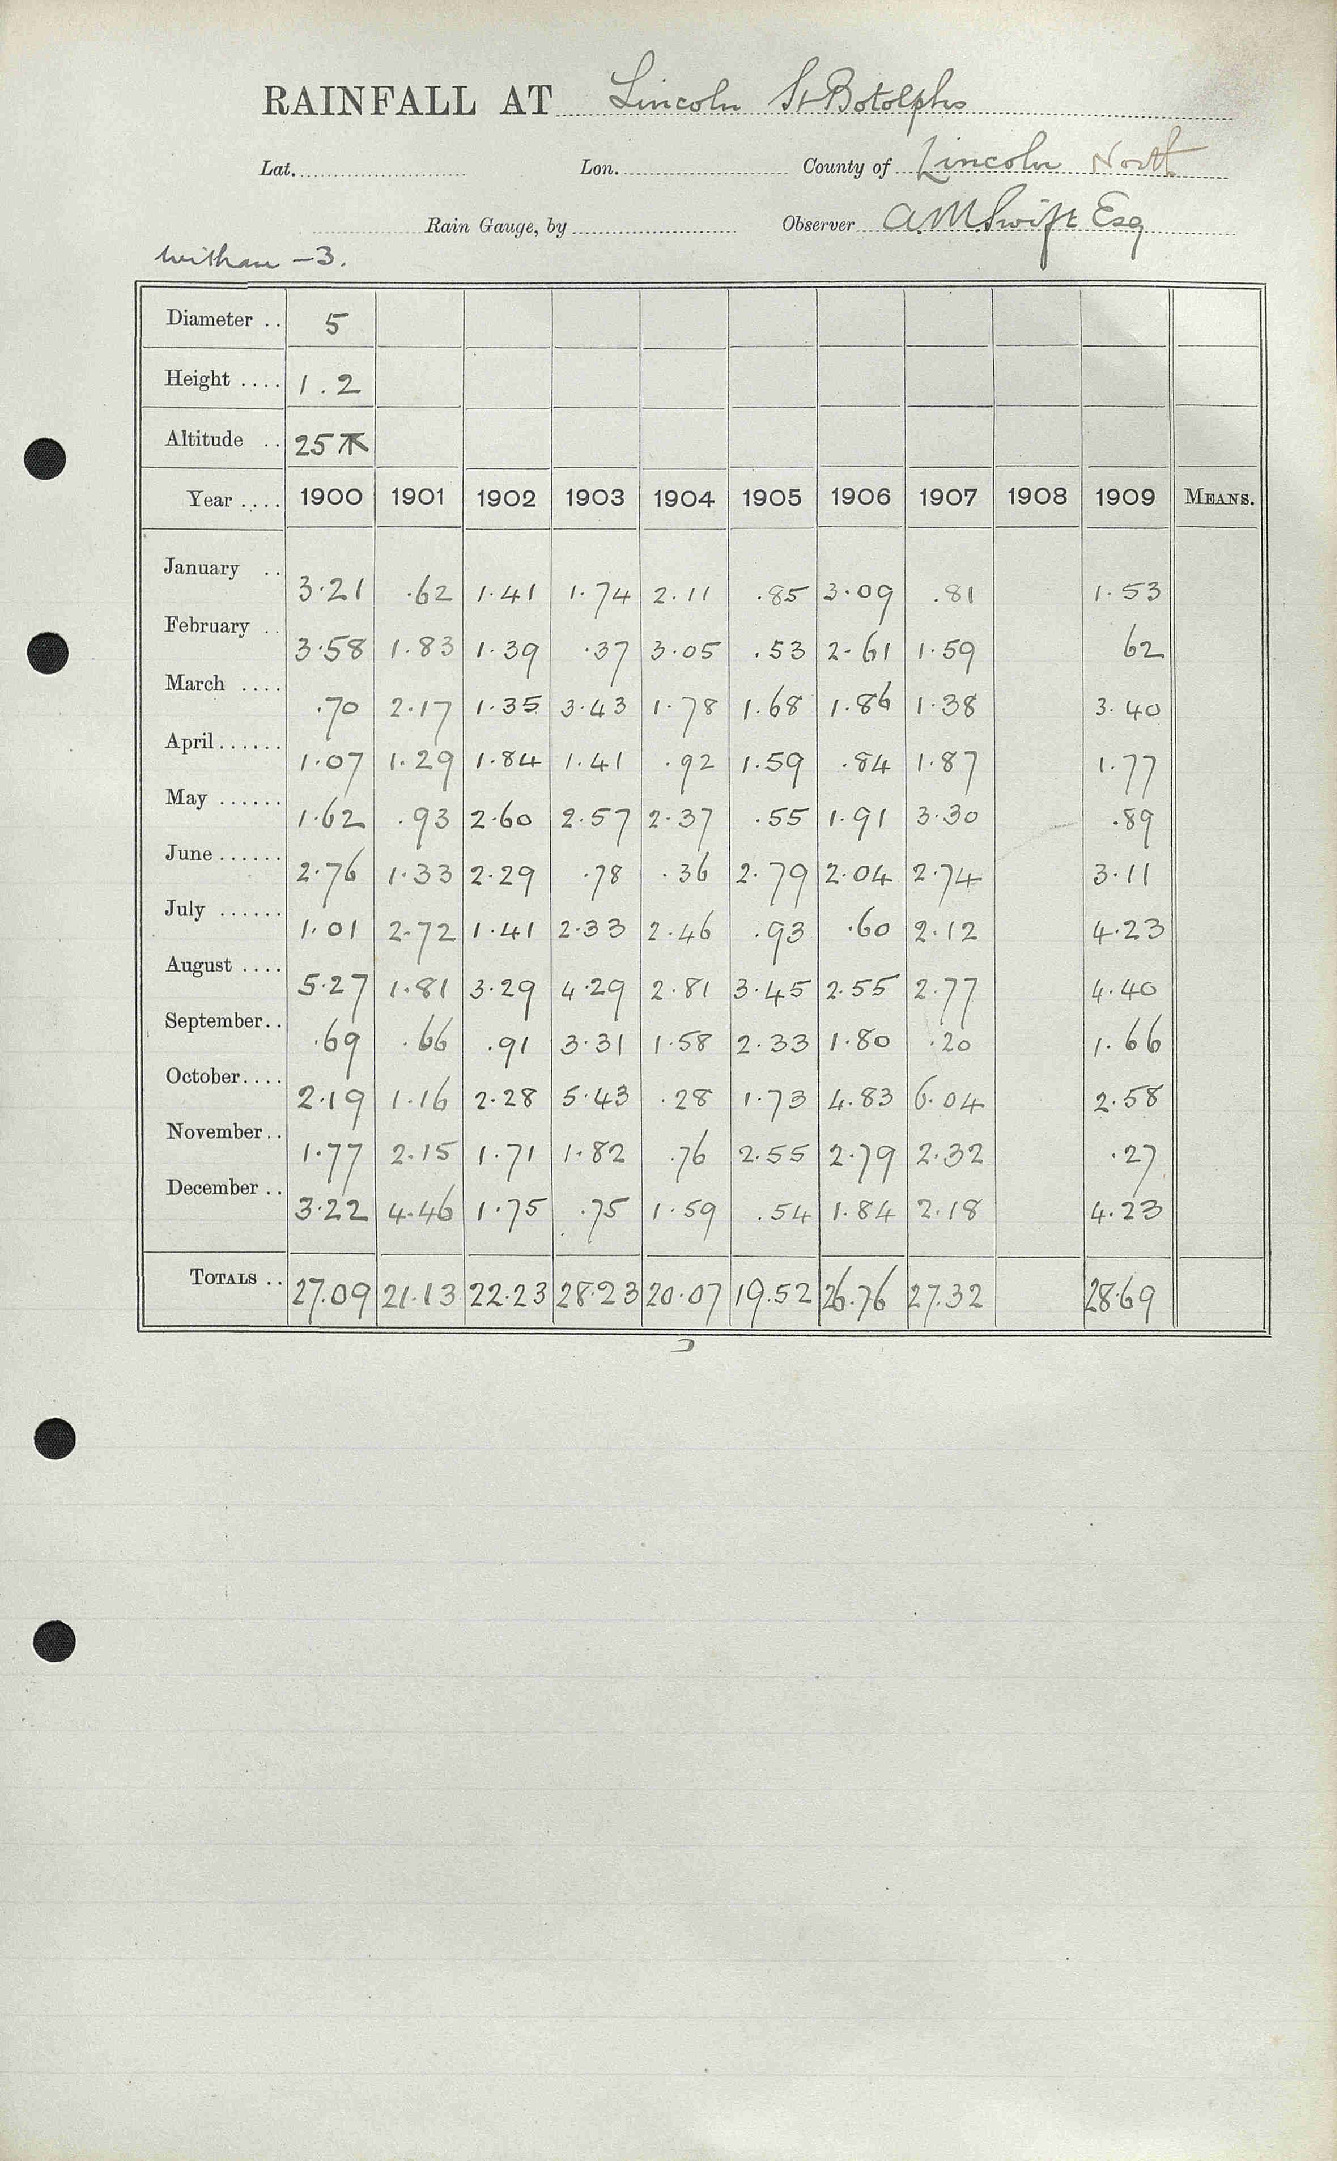 RAINFALL AT Lincoln St Botolphs
Lat. Lon. County of Lincoln North
Rain Gauge, by Observer A.M. Swift Esq
Witham -3.
Diameter .. 5
Height .... 1.2
Altitude .. 25
Year .... 1900 1901 1902 1903 1904 1905 1906 1907 1908 1909 MEANS.
January .. 3.21 .62 1.41 1.74 2.11 .85 3.09 .81 1.53
February .. 3.58 1.83 1.39 .37 3.05 .53 2.61 1.59 62
March .... .70 2.17 1.35 3.43 1.78 1.68 1.86 1.38 3.40
April...... 1.07 1.29 1.84 1.41 .92 1.59 .84 1.87 1.77
May ...... 1.62 .93 2.60 2.57 2.37 .55 1.91 3.30 .89
June...... 2.76 1.33 2.29 .78 .36 2.79 2.04 2.74 3.11
July ...... 1.01 2.72 1.41 2.33 2.46 .93 .60 2.12 4.23
August .... 5.27 1.81 3.29 4.29 2.81 3.45 2.55 2.77 4.40
September.. .69 .66 .91 3.31 1.58 2.33 1.80 .20 1.66
October.... 2.19 1.16 2.28 5.43 .28 1.73 4.83 6.04 2.58
November.. 1.77 2.15 1.71 1.82 .76 2.55 2.79 2.32 .27
December .. 3.22 4.46 1.75 .75 1.59 .54 1.84 2.18 4.23
TOTALS .. 27.09 21.13 22.23 28.23 20.07 19.52 26.76 27.32 28.69